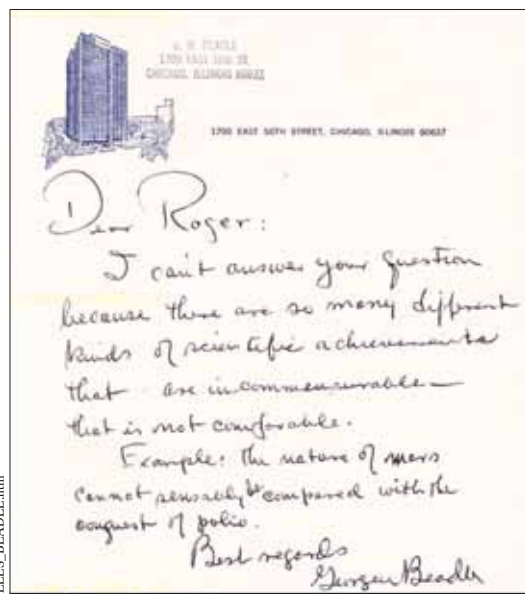 G. W. BEADLE
1700 EAST 56th ST.
CHICAGO, ILLINOIS 60637
1700 EAST 56TH STREET, CHICAGO, ILLINOIS 60637
Dear Roger:
I can't answer your question
because there are so many different
kinds of scientific achievements
that are incommensurable—
that is not comparable.
Example: the nature of mars
cannot sensibly be compared with the
conquest of polio.
Best regards
George Beadle